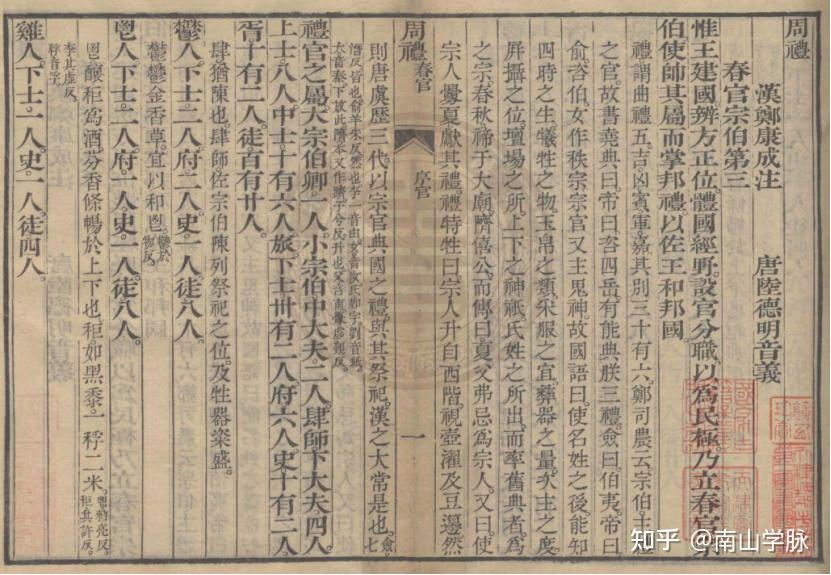 周禮
漢鄭康成注　唐陸德明音義
春官宗伯第三
惟王建國辨方正位體國經野設官分職以爲民極乃立春官宗
伯使帥其屬而掌邦禮以佐王和邦國
禮謂曲禮五吉凶賓軍嘉其別三十有六鄭司農云宗伯主禮
之官故書堯典曰帝曰咨四岳有能典朕三禮僉曰伯夷帝曰
俞咨伯女作秩宗宗官又主鬼神故國語曰使名姓之後能知
四時之生犧牲之物玉帛之類采服之宜彝器之量次主之度
屏攝之位壇場之所上下之神祇氏姓之所出而率舊典者爲
之宗春秋禘于大廟躋僖公而傳曰夏父弗忌爲宗人又曰使
宗人釁夏獻其禮禮特牲曰宗人升自西階視壺濯及豆籩然
周禮 春官
序官
一
則唐虞歷三代以宗官典國之禮與其祭祀漢之大常是也
禮官之屬大宗伯卿一人小宗伯中大夫二人肆師下大夫四人
上士八人中士十有六人旅下士卅有二人府六人史十有二人
胥十有二人徒百有廿人
肆猶陳也肆師佐宗伯陳列祭祀之位及牲器粢盛
鬱人下士二人府二人史一人徒八人
鬱鬱金香草宜以和鬯
鬯人下士二人府一人史一人徒八人
鬯釀秬爲酒芬香條暢於上下也秬如黑黍一稃二米
李其虛反
稃音孚
雞人下士一人史一人徒四人
知乎 @南山学脉